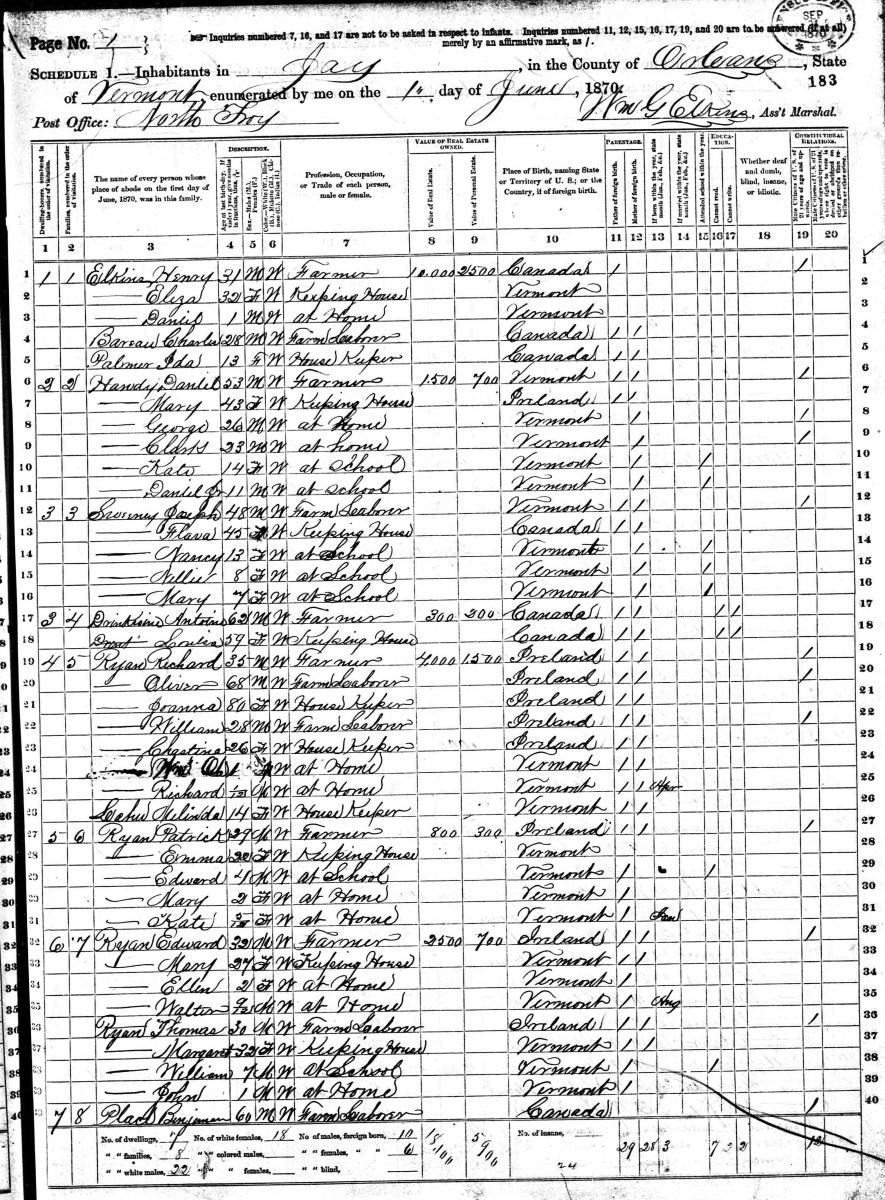 Page No. 1
☞ Inquiries numbered 7, 16, and 17 are not to be asked in respect to infants. Inquiries numbered 11, 12, 15, 16, 17, 19, and 20 are to be answered (if at all)
merely by an affirmative mark, as /.
SEP 1870
SCHEDULE 1.—Inhabitants in Jay, in the County of Orleans, State
183
of Vermont, enumerated by me on the 1st day of June, 1870.
Post Office: North Troy
Wm G Elkins, Ass't Marshal.
Dwelling-houses, numbered in the order of visitation.
Families, numbered in the order of visitation.
The name of every person whose place of abode on the first day of June, 1870, was in this family.
DESCRIPTION.
Age at last birth-day. If under 1 year, give months in fractions, thus, 3/12.
Sex.—Males (M.), Females (F.)
Color.—White (W.), Black (B.), Mulatto (M.), Chinese (C.), Indian (I.)
Profession, Occupation, or Trade of each person, male or female.
VALUE OF REAL ESTATE OWNED.
Value of Real Estate.
Value of Personal Estate.
Place of Birth, naming State or Territory of U. S.; or the Country, if of foreign birth.
PARENTAGE.
Father of foreign birth.
Mother of foreign birth.
If born within the year, state month (Jan., Feb., &c.)
If married within the year, state month (Jan., Feb., &c.)
EDUCATION.
Attended school within the year.
Cannot read.
Cannot write.
Whether deaf and dumb, blind, insane, or idiotic.
CONSTITUTIONAL RELATIONS.
Male Citizens of U. S. of 21 years of age and upwards.
1 2 3 4 5 6 7 8 9 10 11 12 13 14 15 16 17 18 19 20
1 1 1 Elkins Henry 31 M W Farmer 10.000 2500 Canada / / 1
2 — Eliza 32 F W Keeping House Vermont 2
3 — Daniel 1 M W at Home Vermont 3
4 Bareau Charles 28 M W Farm Laborer Canada / / 4
5 Palmer Ida 13 F W House Keeper Canada / / 5
6 2 2 Handy Daniel 53 M W Farmer 1.500 700 Vermont / / 6
7 — Mary 43 F W Keeping House Ireland / / 7
8 — George 26 M W at Home Vermont / / 8
9 — Clark 23 M W at home Vermont / / 9
10 — Kate 14 F W at School Vermont / / 10
11 — Daniel Jr 11 M W at School Vermont / / 11
12 3 3 Sweeney Joseph 48 M W Farm Laborer Vermont / / / 12
13 — Flava 45 F W Keeping House Canada / / 13
14 — Nancy 13 F W at School Vermont / / 14
15 — Nellie 8 F W at School Vermont / / 15
16 — Mary 7 F W at School Vermont / / 16
17 3 4 Drinkwine Antoine 62 M W Farmer 300 200 Canada / / / / 17
18 Louisa 59 F W Keeping House Canada / / / / 18
19 4 5 Ryan Richard 35 M W Farmer 4.000 1.500 Ireland / / / 19
20 — Oliver 68 M W Farm Laborer Ireland / / / 20
21 — Joanna 80 F W House Keeper Ireland / / 21
22 — William 28 M W Farm Laborer Ireland / / / 22
23 — Chrstina 26 F W House Keeper Ireland / / 23
24 — Wm 1 W at Home Vermont / / 24
25 — Richard M W at Home Vermont / / Apr 25
26 Melinda 14 F W House Keeper Vermont / / 26
27 5 6 Ryan Patrick 29 M W Farmer 800 300 Ireland / / / 27
28 — Emma 22 F W Keeping House Vermont 28
29 — Edward 4 M W at School Vermont / / 29
30 — Mary 2 F W at Home Vermont / 30
31 — Kate F W at Home Vermont / Jan 31
32 6 7 Ryan Edward 32 M W Farmer 2500 700 Ireland / / / 32
33 — Mary 27 F W Keeping House Vermont / / 33
34 — Ellen 2 F W at Home Vermont / 34
35 — Walter M W at Home Vermont / Aug 35
36 Ryan Thomas 30 M W Farm Laborer Ireland / / / 36
37 — Margaret 32 F W Keeping House Vermont / / 37
38 — William 7 M W at School Vermont / / 38
39 — John 1 M W at Home Vermont / 39
40 7 8 Place Benjeman 60 M W Farm Laborer Canada / 40
No. of dwellings, 7 No. of white females, 18 No. of males, foreign born, 10 18/100 5900 No. of insane, 29 28 3 7 2 2 12
" " families, 8 " " colored males, " " females, " " 6
" " white males, 22 " " " females, " " blind,
24